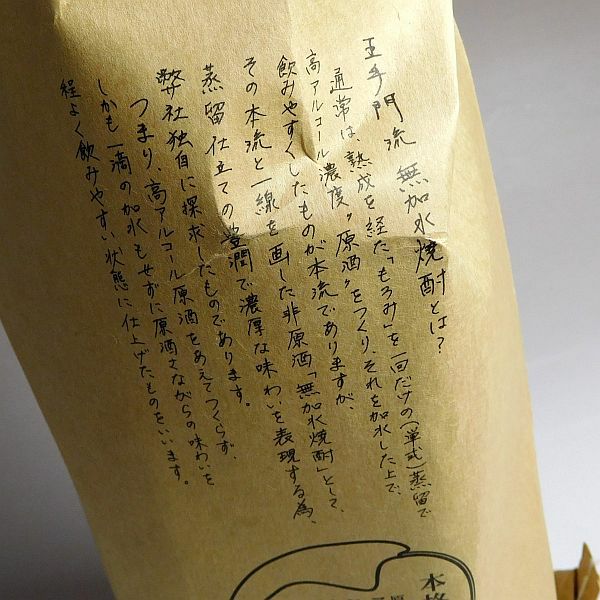 玉手門流 無加水焼酎とは?
通常は、熟成を経た「もろみ」を一回だけの(単式)蒸留で
高アルコール濃度〃原酒〃をつくり、それを加水した上で、
飲みやすくしたものが本流でありますが、
その本流と一線を画した非原酒「無加水焼酎」として、
蒸留仕立ての豊潤で濃厚な味わいを表現する為、
弊社独自に探求したものであります。
つまり、高アルコール原酒をあえてつくらず、
しかも一滴の加水もせずに原酒さながらの味わいを
程よく飲みやすい状態に仕上げたものをいいます。
本格